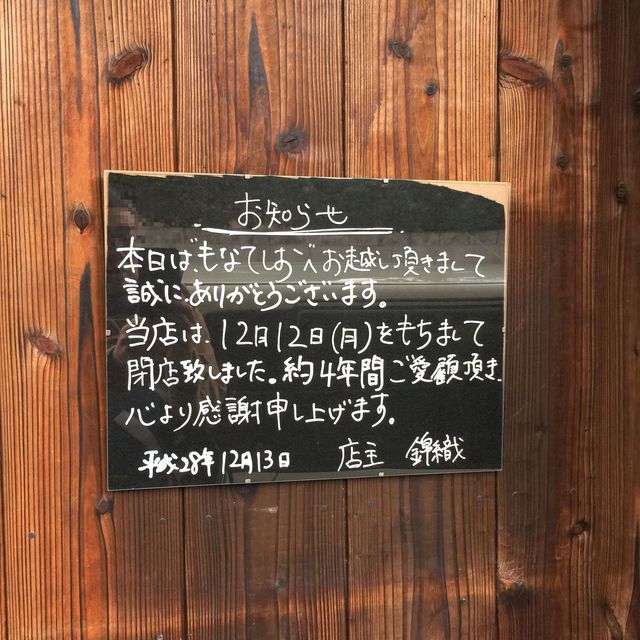 お知らせ
本日は、もなてしおごへお越し頂きまして
誠に、ありがとうございます。
当店は、12月12日(月)をもちまして
閉店致しました。約4年間ご愛顧頂き、
心より感謝申し上げます。
平成28年12月13日 店主 錦織